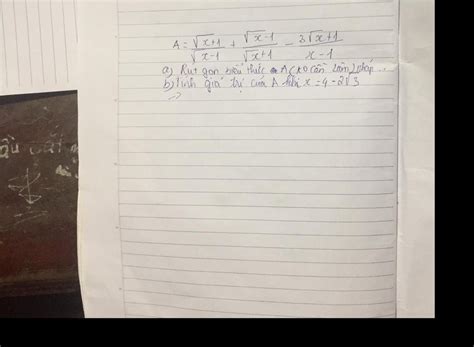 A = \frac{\sqrt{x}+1}{\sqrt{x}-1} + \frac{\sqrt{x}-1}{\sqrt{x}+1} - \frac{3\sqrt{x}+1}{x-1}
a) Rút gọn biểu thức A (ko cần làm
b) Tính giá trị của A khi x = 4 - 2√3